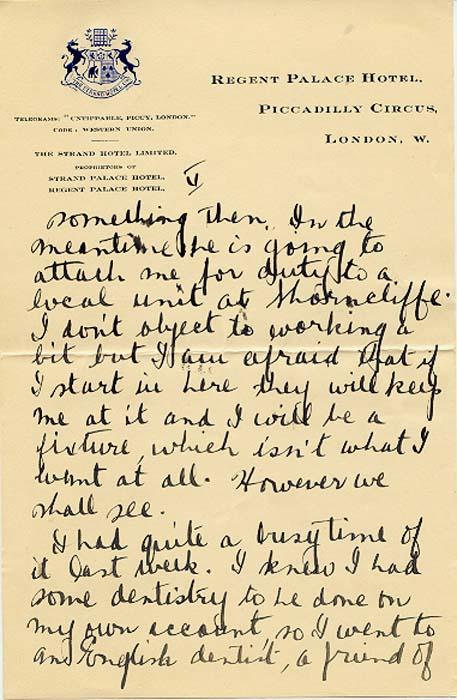 REGENT PALACE HOTEL.
PICCADILLY CIRCUS,
LONDON, W.
TELEGRAMS: "UNTIPPABLE, PICCY, LONDON."
CODE: WESTERN UNION.
THE STRAND HOTEL LIMITED.
PROPRIETORS OF
STRAND PALACE HOTEL,
REGENT PALACE HOTEL,
V
something then. In the
meantime he is going to
attach me for duty to a
local unit at Shorncliffe.
I don't object to working a
bit but I am afraid that if
I start in here they will keep
me at it and I will be a
fixture, which isn't what I
want at all. However we
shall see.
I had quite a busy time of
it last week. I knew I had
some dentistry to be done on
my own account, so I went to
an English dentist, a friend of